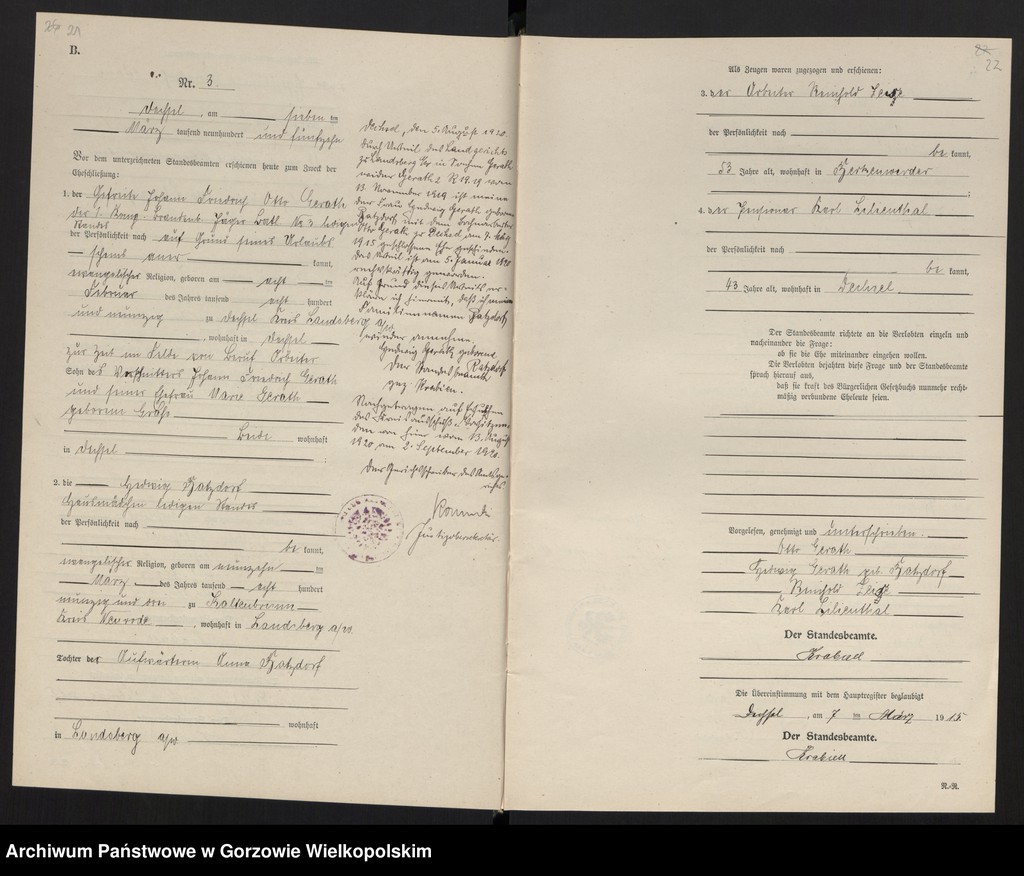 21
B.
Nr. 3.
Dechsel, am sieben ten
März tausend neunhundert und fünfzehn
Vor dem unterzeichneten Standesbeamten erschienen heute zum Zweck der
Eheschließung:
1. der Gefreite Johann Friedrich Otto Gerath
der 1. Komp. Brandenb. Jäger Batl. Nr 3 ledigen
Standes
der Persönlichkeit nach auf Grund seines Urlaubs
scheins aner kannt,
evangelischer Religion, geboren am acht ten
Februar des Jahres tausend acht hundert
und neunzig zu Dechsel Kreis Landsberg a/W.
, wohnhaft in Dechsel
zur Zeit im Felde von Beruf Arbeiter
Sohn des Vorschnitters Johann Friedrich Gerath
und seiner Ehefrau Marie Gerath
geborenen
Beide wohnhaft
in Dechsel
2. die Hedwig Hatzdorf
Hausmädchen ledigen Standes
der Persönlichkeit nach
be kannt,
evangelischer Religion, geboren am neunzehn ten
März des Jahres tausend acht hundert
neunzig und drei zu Kaltenbrunn
Kreis Neurode, wohnhaft in Landsberg a/W.
Tochter der Aufwärterin Anna Hatzdorf
wohnhaft
in Landsberg a/W.
Dechsel, den 5. August 1920.
Durch Urteil des Landgerichts
zu Landsberg a/W in Sachen Gerath
wider Gerath 2 R 19.19 vom
13. November 1919 ist meine
der Frau Hedwig Gerath geborene
Hatzdorf mit dem
Otto Gerath zu Dechsel am 7. März
1915 geschlossene Ehe geschieden.
Das Urteil ist am 5. Januar 1920
rechtskräftig geworden.
Auf Grund dieses Urteils er-
kläre ich hiermit, daß ich meinen
Familiennamen Hatzdorf
wieder annehme.
Hedwig Gerath geborene
Hatzdorf
Der Standesbeamte
gez. Krabiell.
Nachgetragen auf Ersuchen
des Kreisausschuß-Vorsitzen-
den von hier vom 13. August
1920 am 2. September 1920.
Der Gerichtsschreiber des Amtsge-
richts
Justizobersekretär.
22
Als Zeugen waren zugezogen und erschienen:
3. der Arbeiter Reinhold
der Persönlichkeit nach
be kannt,
53 Jahre alt, wohnhaft in Berkenwerder
4. der Pensionär Karl Lilienthal
der Persönlichkeit nach
be kannt,
43 Jahre alt, wohnhaft in Dechsel.
Der Standesbeamte richtete an die Verlobten einzeln und
nacheinander die Frage:
ob sie die Ehe miteinander eingehen wollen.
Die Verlobten bejahten diese Frage und der Standesbeamte
sprach hierauf aus,
daß sie kraft des Bürgerlichen Gesetzbuchs nunmehr recht-
mäßig verbundene Eheleute seien.
Vorgelesen, genehmigt und unterschrieben.
Otto Gerath
Hedwig Gerath geb Hatzdorf
Reinhold
Karl Lilienthal
Der Standesbeamte.
Krabiell
Die Übereinstimmung mit dem Hauptregister beglaubigt
Dechsel, am 7 ten März 1915.
Der Standesbeamte.
Krabiell
N.-R.
Archiwum Państwowe w Gorzowie Wielkopolskim